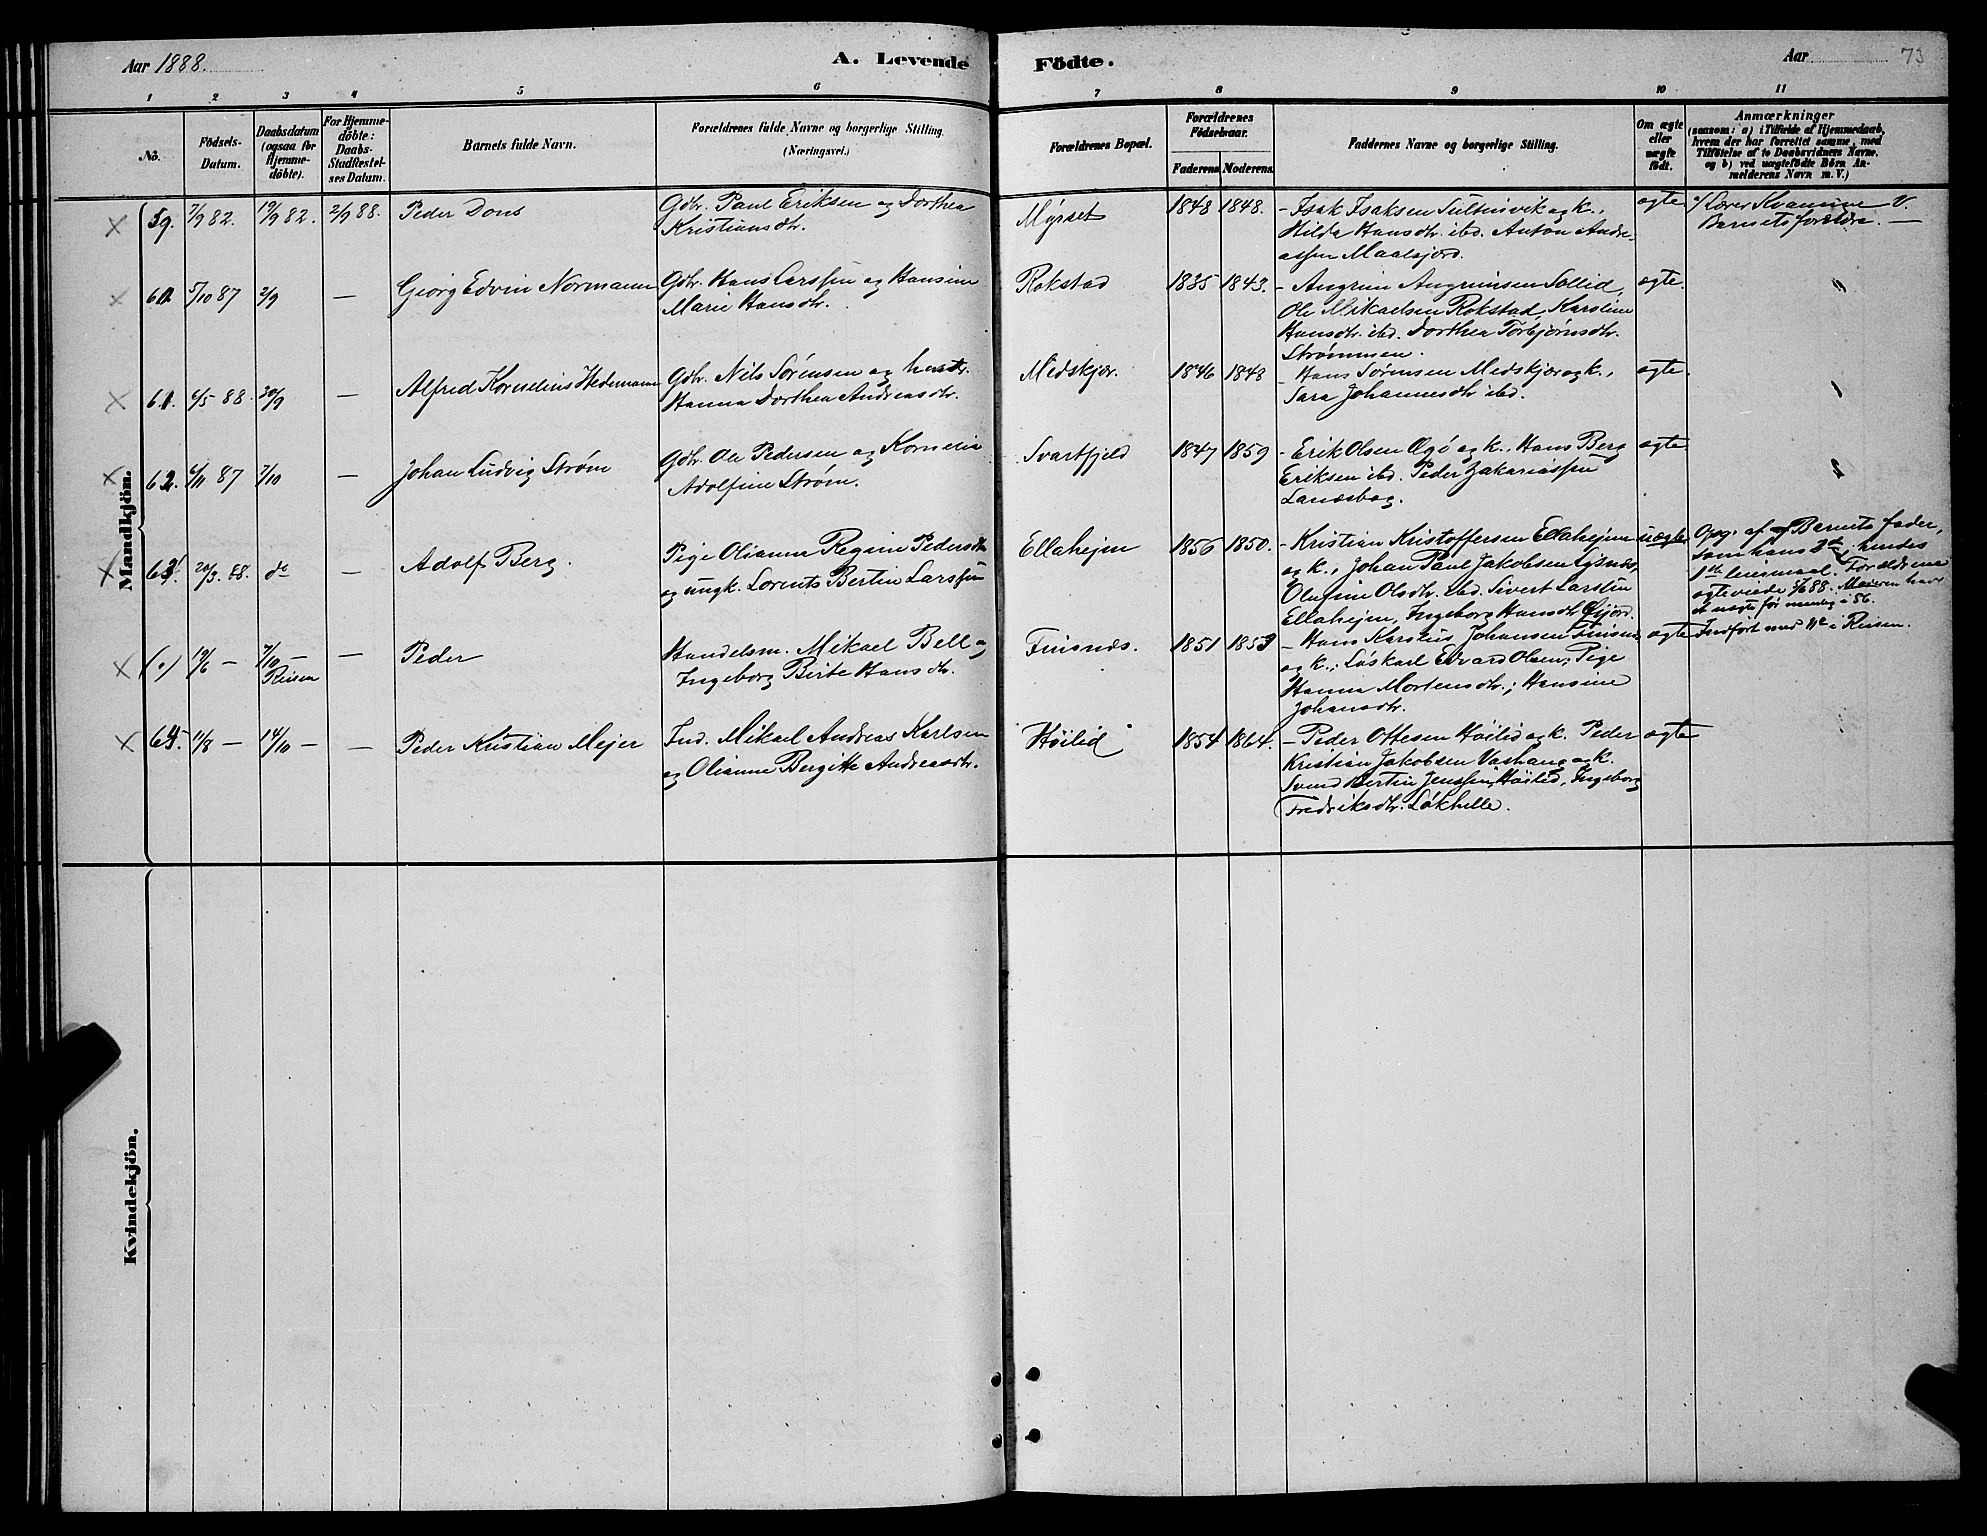 Aar 1888.
A. Levende Födte.
Aar 73
1 2 3 4 5 6 7 8 9 10 11
No.
Födsels-Datum.
Daabsdatum (ogsaa for Hjemme-döbte).
For Hjemme-döbte: Daabs-Stadfæstel-ses Datum.
Barnets fulde Navn.
Forældrenes fulde Navne og borgerlige Stilling.
(Næringsvei.)
Forældrenes Bopæl.
Forældrenes Födselsaar.
Faderens Moderens
Faddernes Navne og borgerlige Stilling.
Om ægte eller uægte födt.
Anmærkninger
(saasom: a) i Tilfælde af Hjemmedaab,
hvem der har forrettet samme, med
Tilföielse af to Daabsvidners Navne,
og b) ved uægtefödte Börn An-
melderens Navn m. V.)
Mandkjön.
59. 7/9 82. 19/9 82. 2/9 88. Peder Dons
Gdbr. Paul Eriksen og Dorthea
Kristiansdtr.
Myrset 1848 1848.
- Isak Isaksen Sultinvik og k.,
Hilda Hansdtr. ibd. Anton Andre-
assen Maalsfjord.
ægte
Lærer Kvamme
Barnets forældre.
60. 5/10 87 2/9 — Georg Edvin Normann
Gdbr. Hans Larssen og Hansine
Marie Hansdtr.
Rokstad 1835 1843.
- Angrim Angrimsen Sollid,
Ole Mikaelsen Rokstad, Karoline
Hansdtr. ibd. Dorthea Torbjørnsdtr.
Strømmen.
ægte.
"
61. 6/5 88. 30/9 — Alfred Kornelius Hedemann
Gdbr. Nils Sørensen og hustr.
Hanna Dorthea Andreasdtr.
Medskjær. 1846 1848
- Hans Sørensen Medskjær og k.,
Sara Johannesdtr ibd.
ægte.
62. 6/11 87 7/10 — Johan Ludvig Strøm
Gdbr. Ole Pedersen og Kornelia
Adolfine Strøm.
Svartfjeld 1847 1859
- Erik Olsen Øgø og k., Hans Berg
Eriksen ibd. Peder Zakariassen
Landsbog.
ægte
"
63. 20/3. 88. do — Adolf Berg.
Pige Olianna Regine Pedersdtr
og ungk. Lorents Bertin Larssen
Ellahejen 1856 1850.
- Kristian Kristoffersen Ellahejen
og k., Johan Paul Jakobsen Lysnes,
Olufine Olsdtr. ibd. Sivert Larssen
Ellahejen, Ingeborg Hansdtr Gjord.
uægte
Opg. af Barnets fader,
som hans 3die, hendes
1ste leiermaal. Forældrene
ægteviede 88. Moderen havt
et uægte før
(.) 19/6 — 7/10 — Reisen — Peder
Handelsm. Mikael Bell og
Ingeborg Birte Hansdtr.
Finsnes. 1851 1853
- Hans Karelius Johansen Finsnes
og k.; Løskarl Edvard Olsen; Pige
Hanna Mortensdtr.; Hansine
Johansdtr.
ægte
Indført med No i Reisen.
64. 11/8 — 14/10 — — Peder Kristian Mejer
Ind. Mikael Andreas Karlsen
og Olianna Bergitte Andreasdtr.
Høilid 1854 1864.
- Peder Ottesen Høilid og k. Peder
Kristian Jakobsen Vashaug og k.
Svend Bertin Jenssen, Høilid, Ingeborg
Fredriksdtr. Løkhelle.
ægte
Kvindekjön.